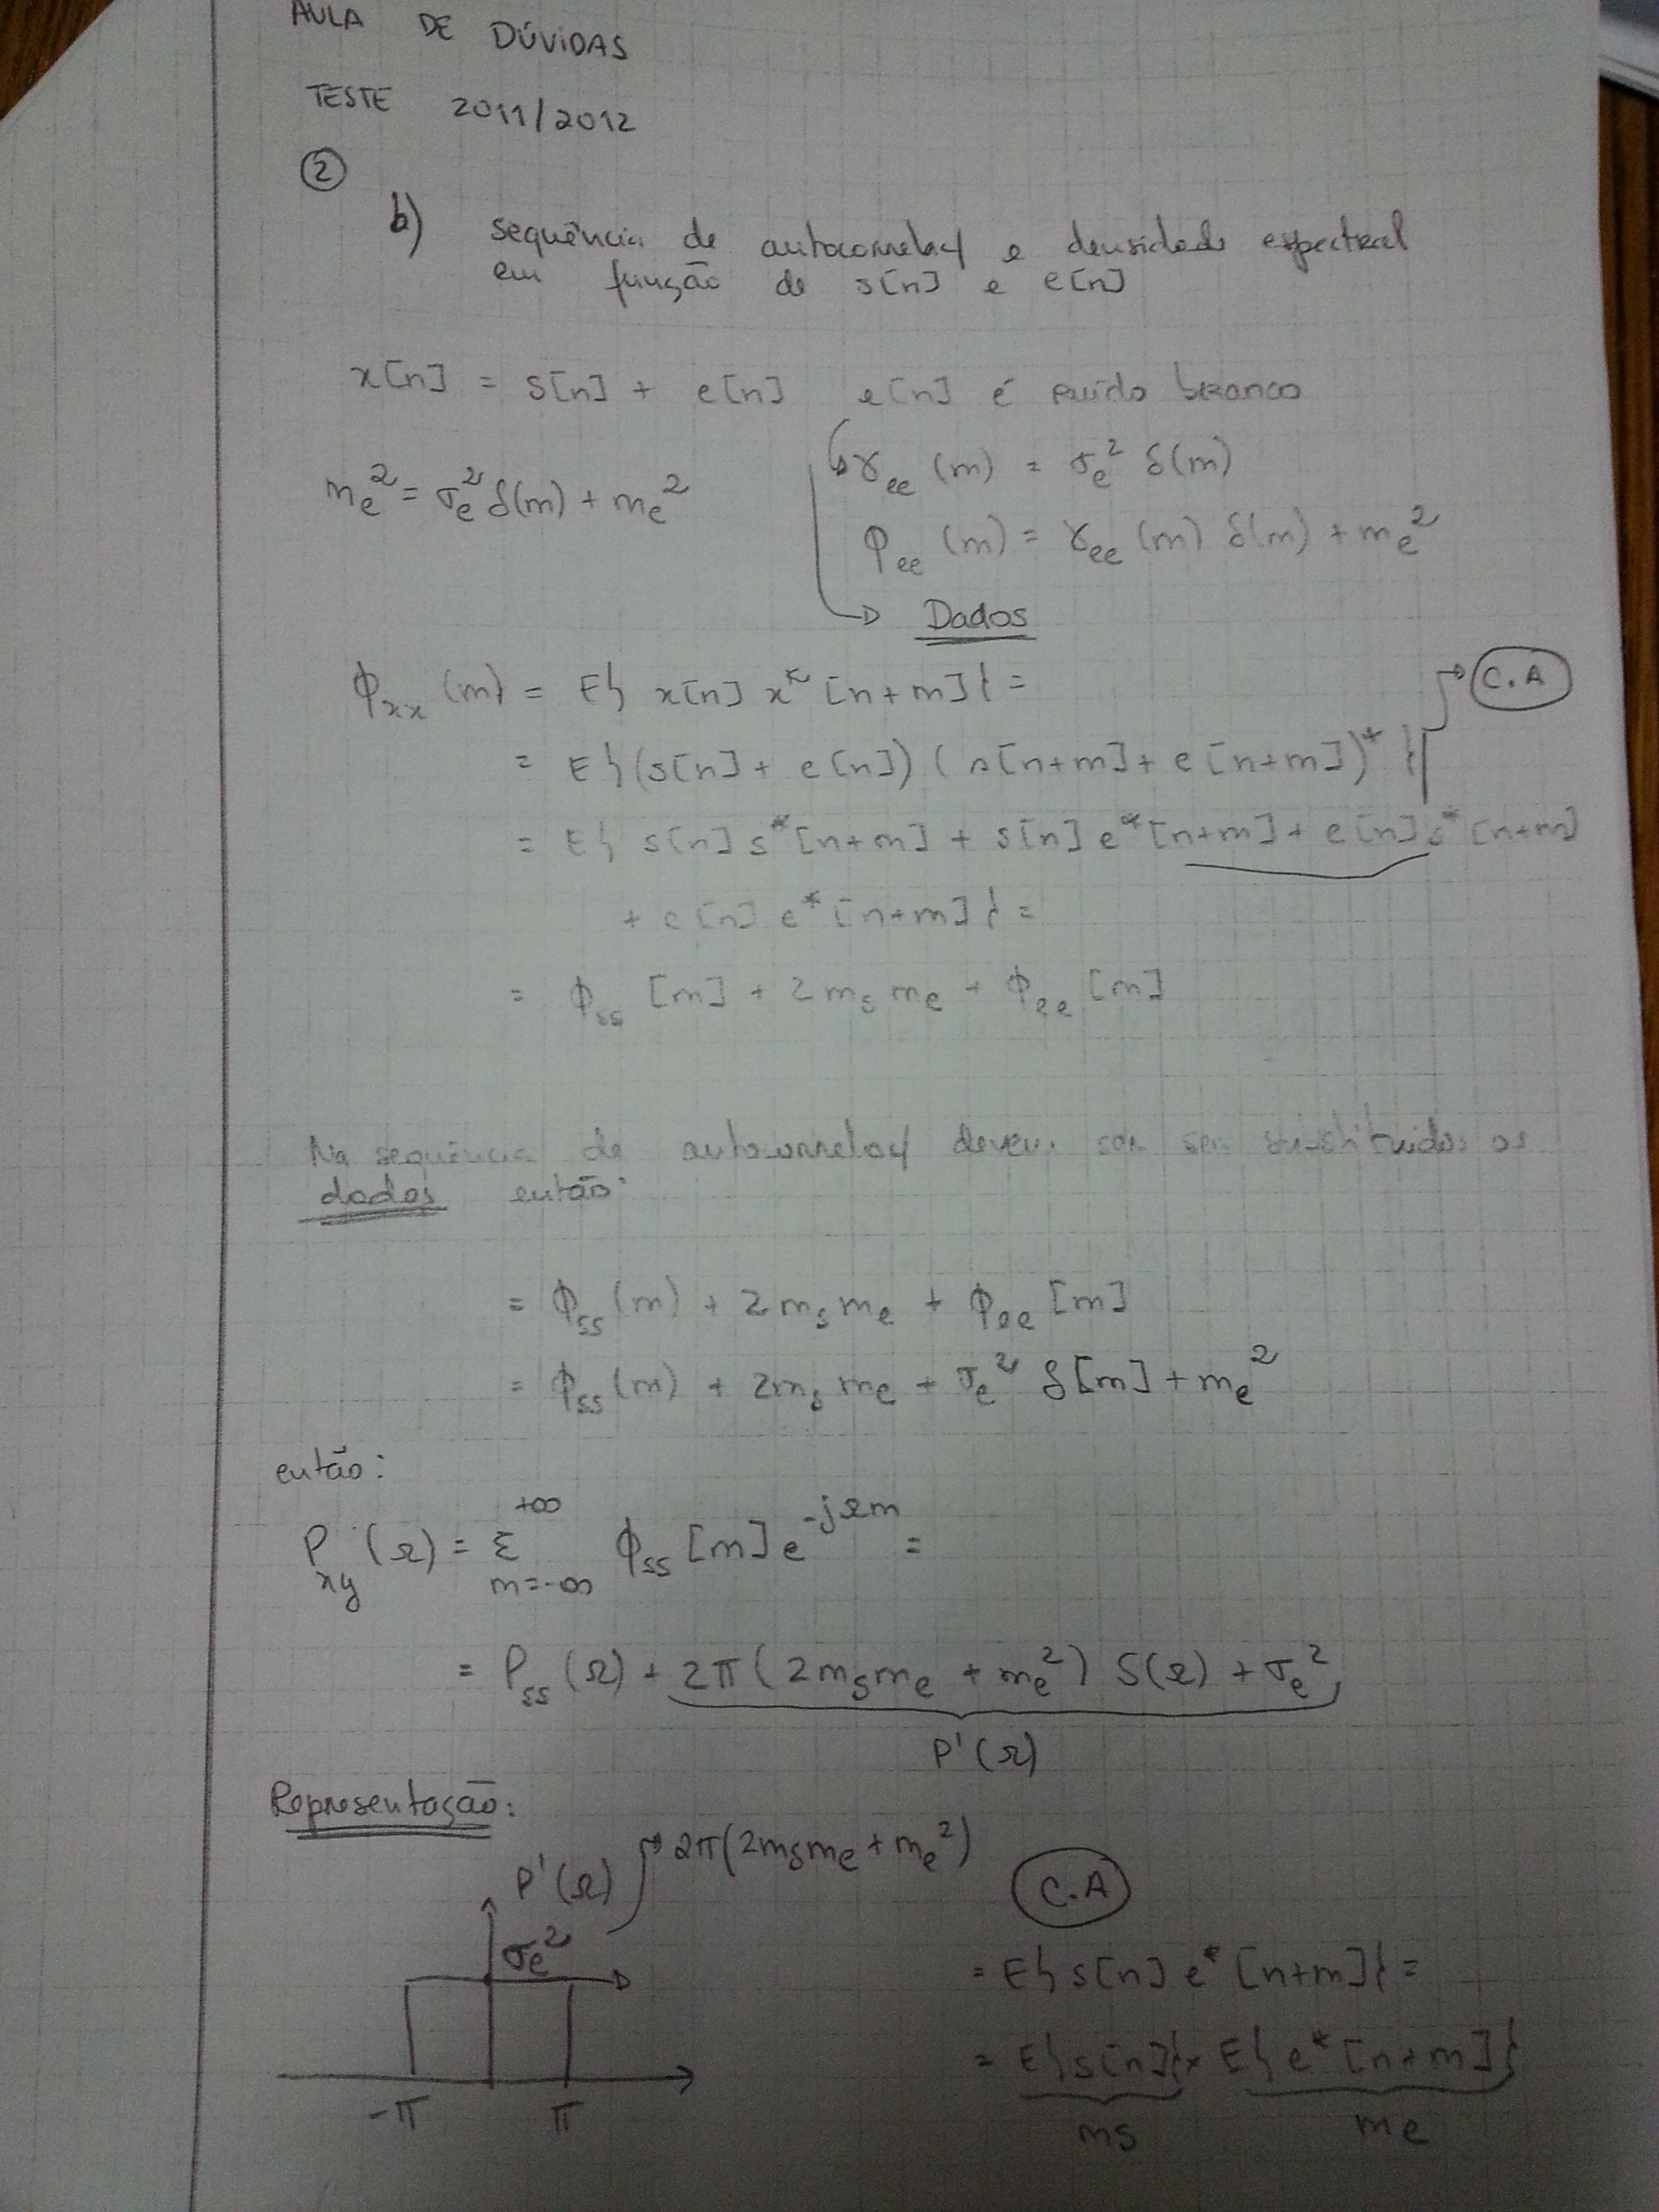 AULA DE DÚVIDAS
TESTE 2011/2012
②
b) sequência de autocorrelaç e densidade espectral
em função de s[n] e e[n]
x[n] = s[n] + e[n] e[n] é ruído branco
↳ γee (m) = σe² δ(m)
me² = σe² δ(m) + me²
φee (m) = γee (m) δ(m) + me²
→ Dados
ϕxx (m) = E{ x[n] x* [n+m] } =
→ C.A
= E{ (s[n] + e[n]) (s[n+m] + e[n+m])* }
= E{ s[n] s* [n+m] + s[n] e* [n+m] + e[n] s* [n+m]
+ e[n] e* [n+m] } =
= ϕss [m] + 2 ms me + ϕee [m]
Na sequência de autocorrelaç devem ser substituidos os
dados então:
= ϕss (m) + 2 ms me + ϕee [m]
= ϕss (m) + 2ms me + σe² δ[m] + me²
então:
Pxy (Ω) = Σ m=-∞ +∞ ϕss [m] e^-jΩm =
= Pss (Ω) + 2π (2msme + me²) δ(Ω) + σe²
P'(Ω)
Representação:
P'(Ω) → 2π(2msme + me²)
C.A
σe²
= E{ s[n] e* [n+m] } =
= E{s[n]} × E{ e* [n+m] }
-π π
ms me